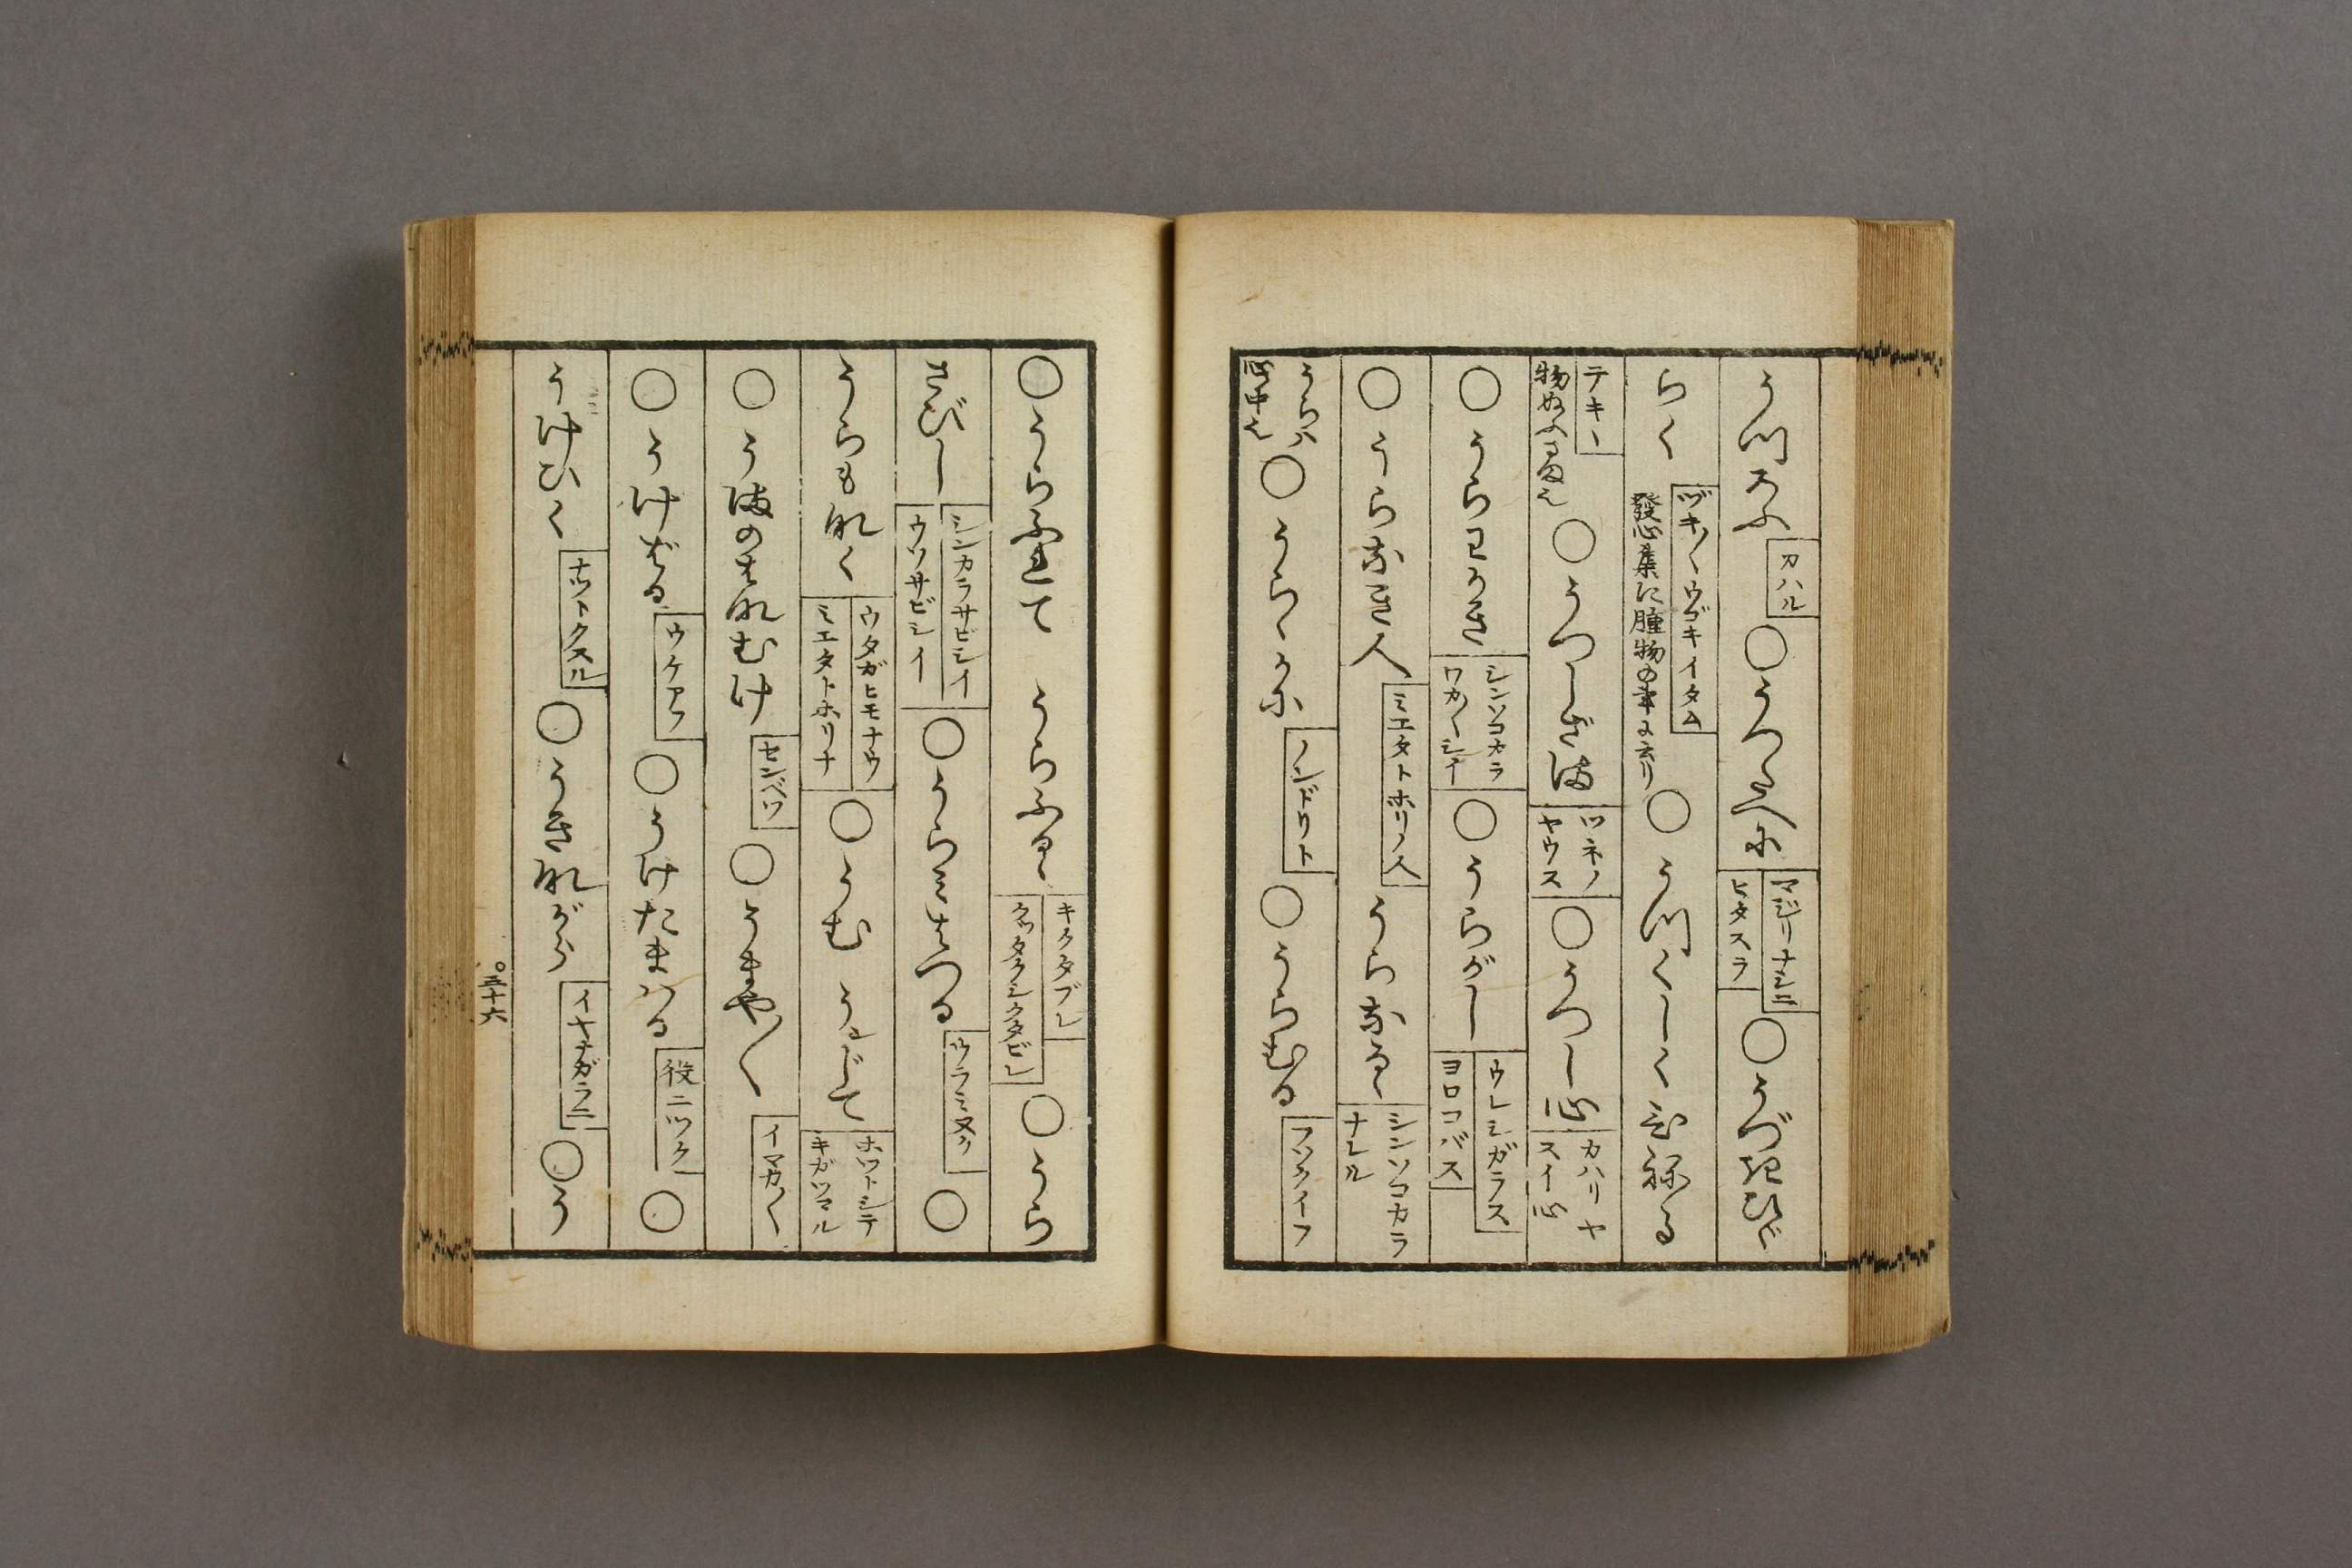 うつろふ カハル ○うつたへに マジリナシニ ヒタスラ ○うづきひゞ
らく ヅキ〳〵ウゴキイタム 發心集に腫物の事に云り ○うつくしくひねる
テキ〳〵 物ぬふ ○うつしざま ツネノヤウス ○うつし心 カハリヤスイ心
○うらわかき シンソコカラワカ〳〵シイ ○うらがし ウレシガラス ヨロコバス
○うらなき人 ミエタトホリノ人 うらなるゝ シンソコカラナレル
うらハ心中也 ○うらゝかに ノンドリト ○うらむる フソクイフ
○うらふれて うらふるゝ キクタブレ クツタクシクタビレ ○うら
さびし シンカラサビシイ ウソサビシイ ○うらみはつる ウラミヌク ○
うらもなく ウタガヒモナウ ミエタトホリナ ○うむ うんじて ホツトシテ キガツマル
○うまのはなむけ センベツ ○うまや〳〵 イマカ〳〵
○うけばる ウケアフ ○うけたまハる 役ニツク ○
うけひく ナツトクスル ○うきながら イヤナガラニ ○う
三十六